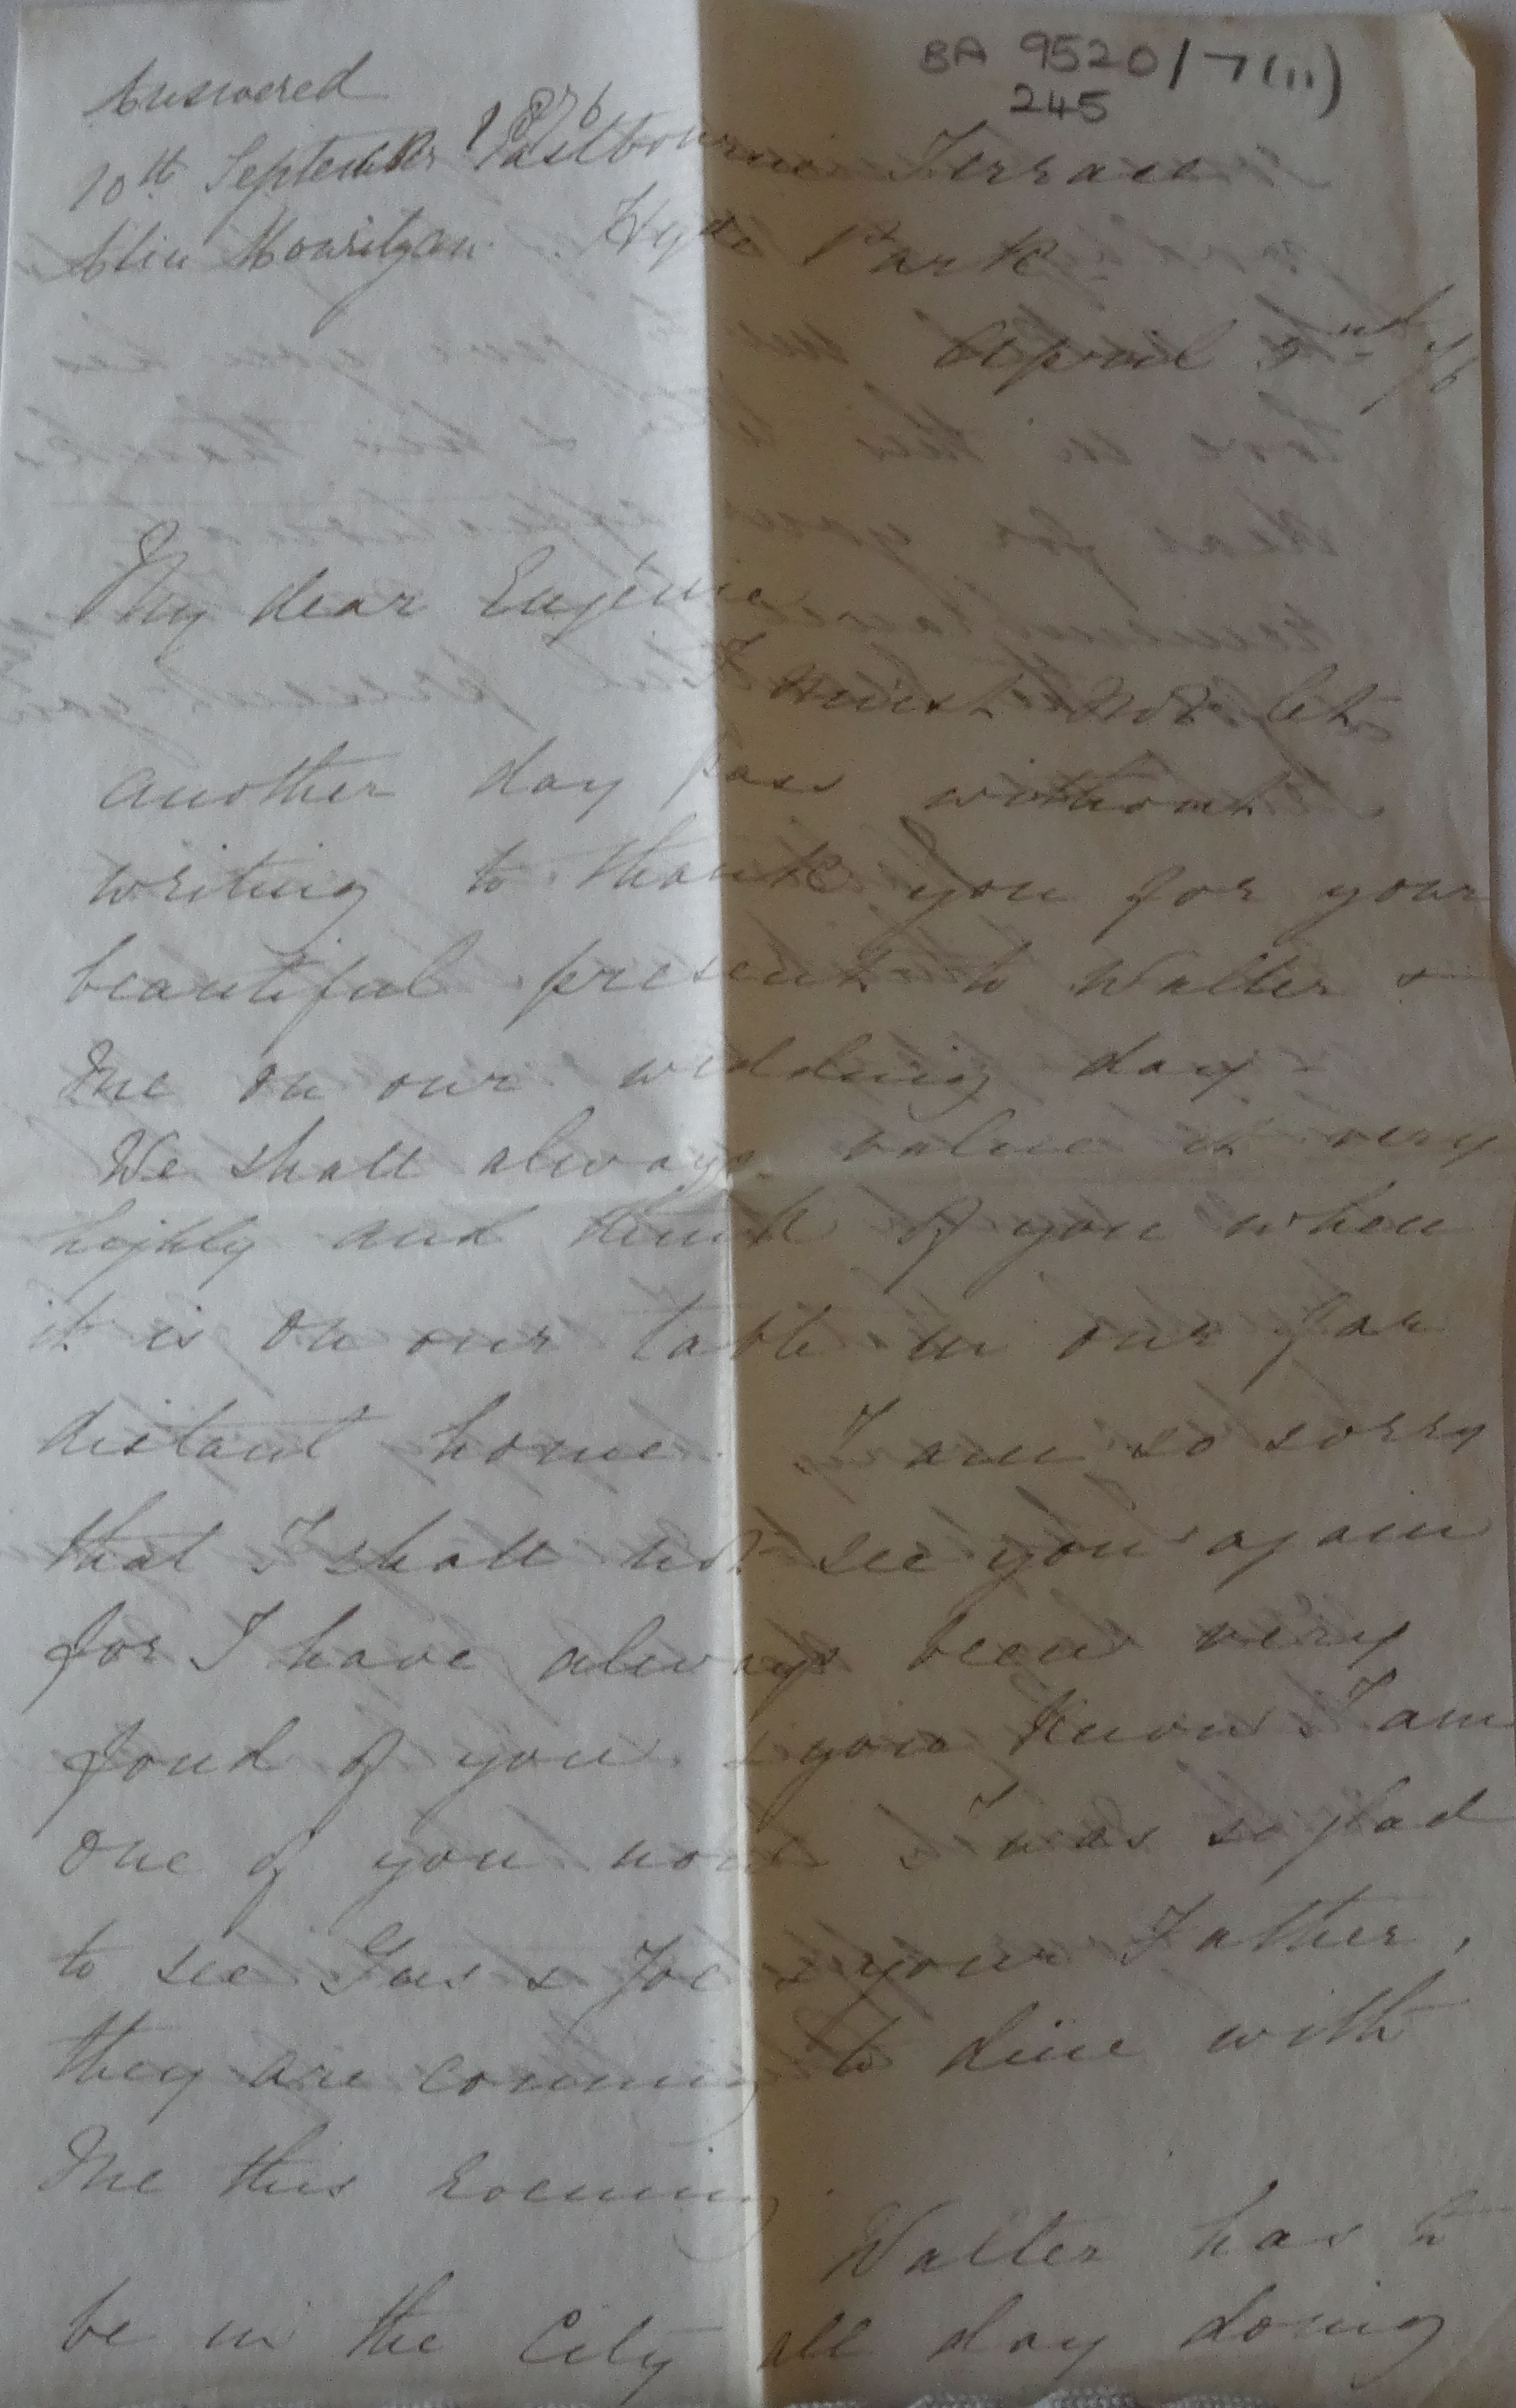 BA 9520/7(ii)
245
Answered
10th September 1876
Eastbourne Terrace
Hyde Park
April 3rd 76
My dear Eugénie
I must not let
another day pass without
writing to thank you for your
beautiful present to Walter &
me on our wedding day -
We shall always value it very
highly and think of you when
it is on our table in our far
distant home. I am so sorry
that I shall not see you again
for I have always been very
fond of you & you know I am
one of you now I was so glad
to see Gus & Joe & your Father,
they are coming to dine with
me this evening
Walter has to
be in the City all day doing